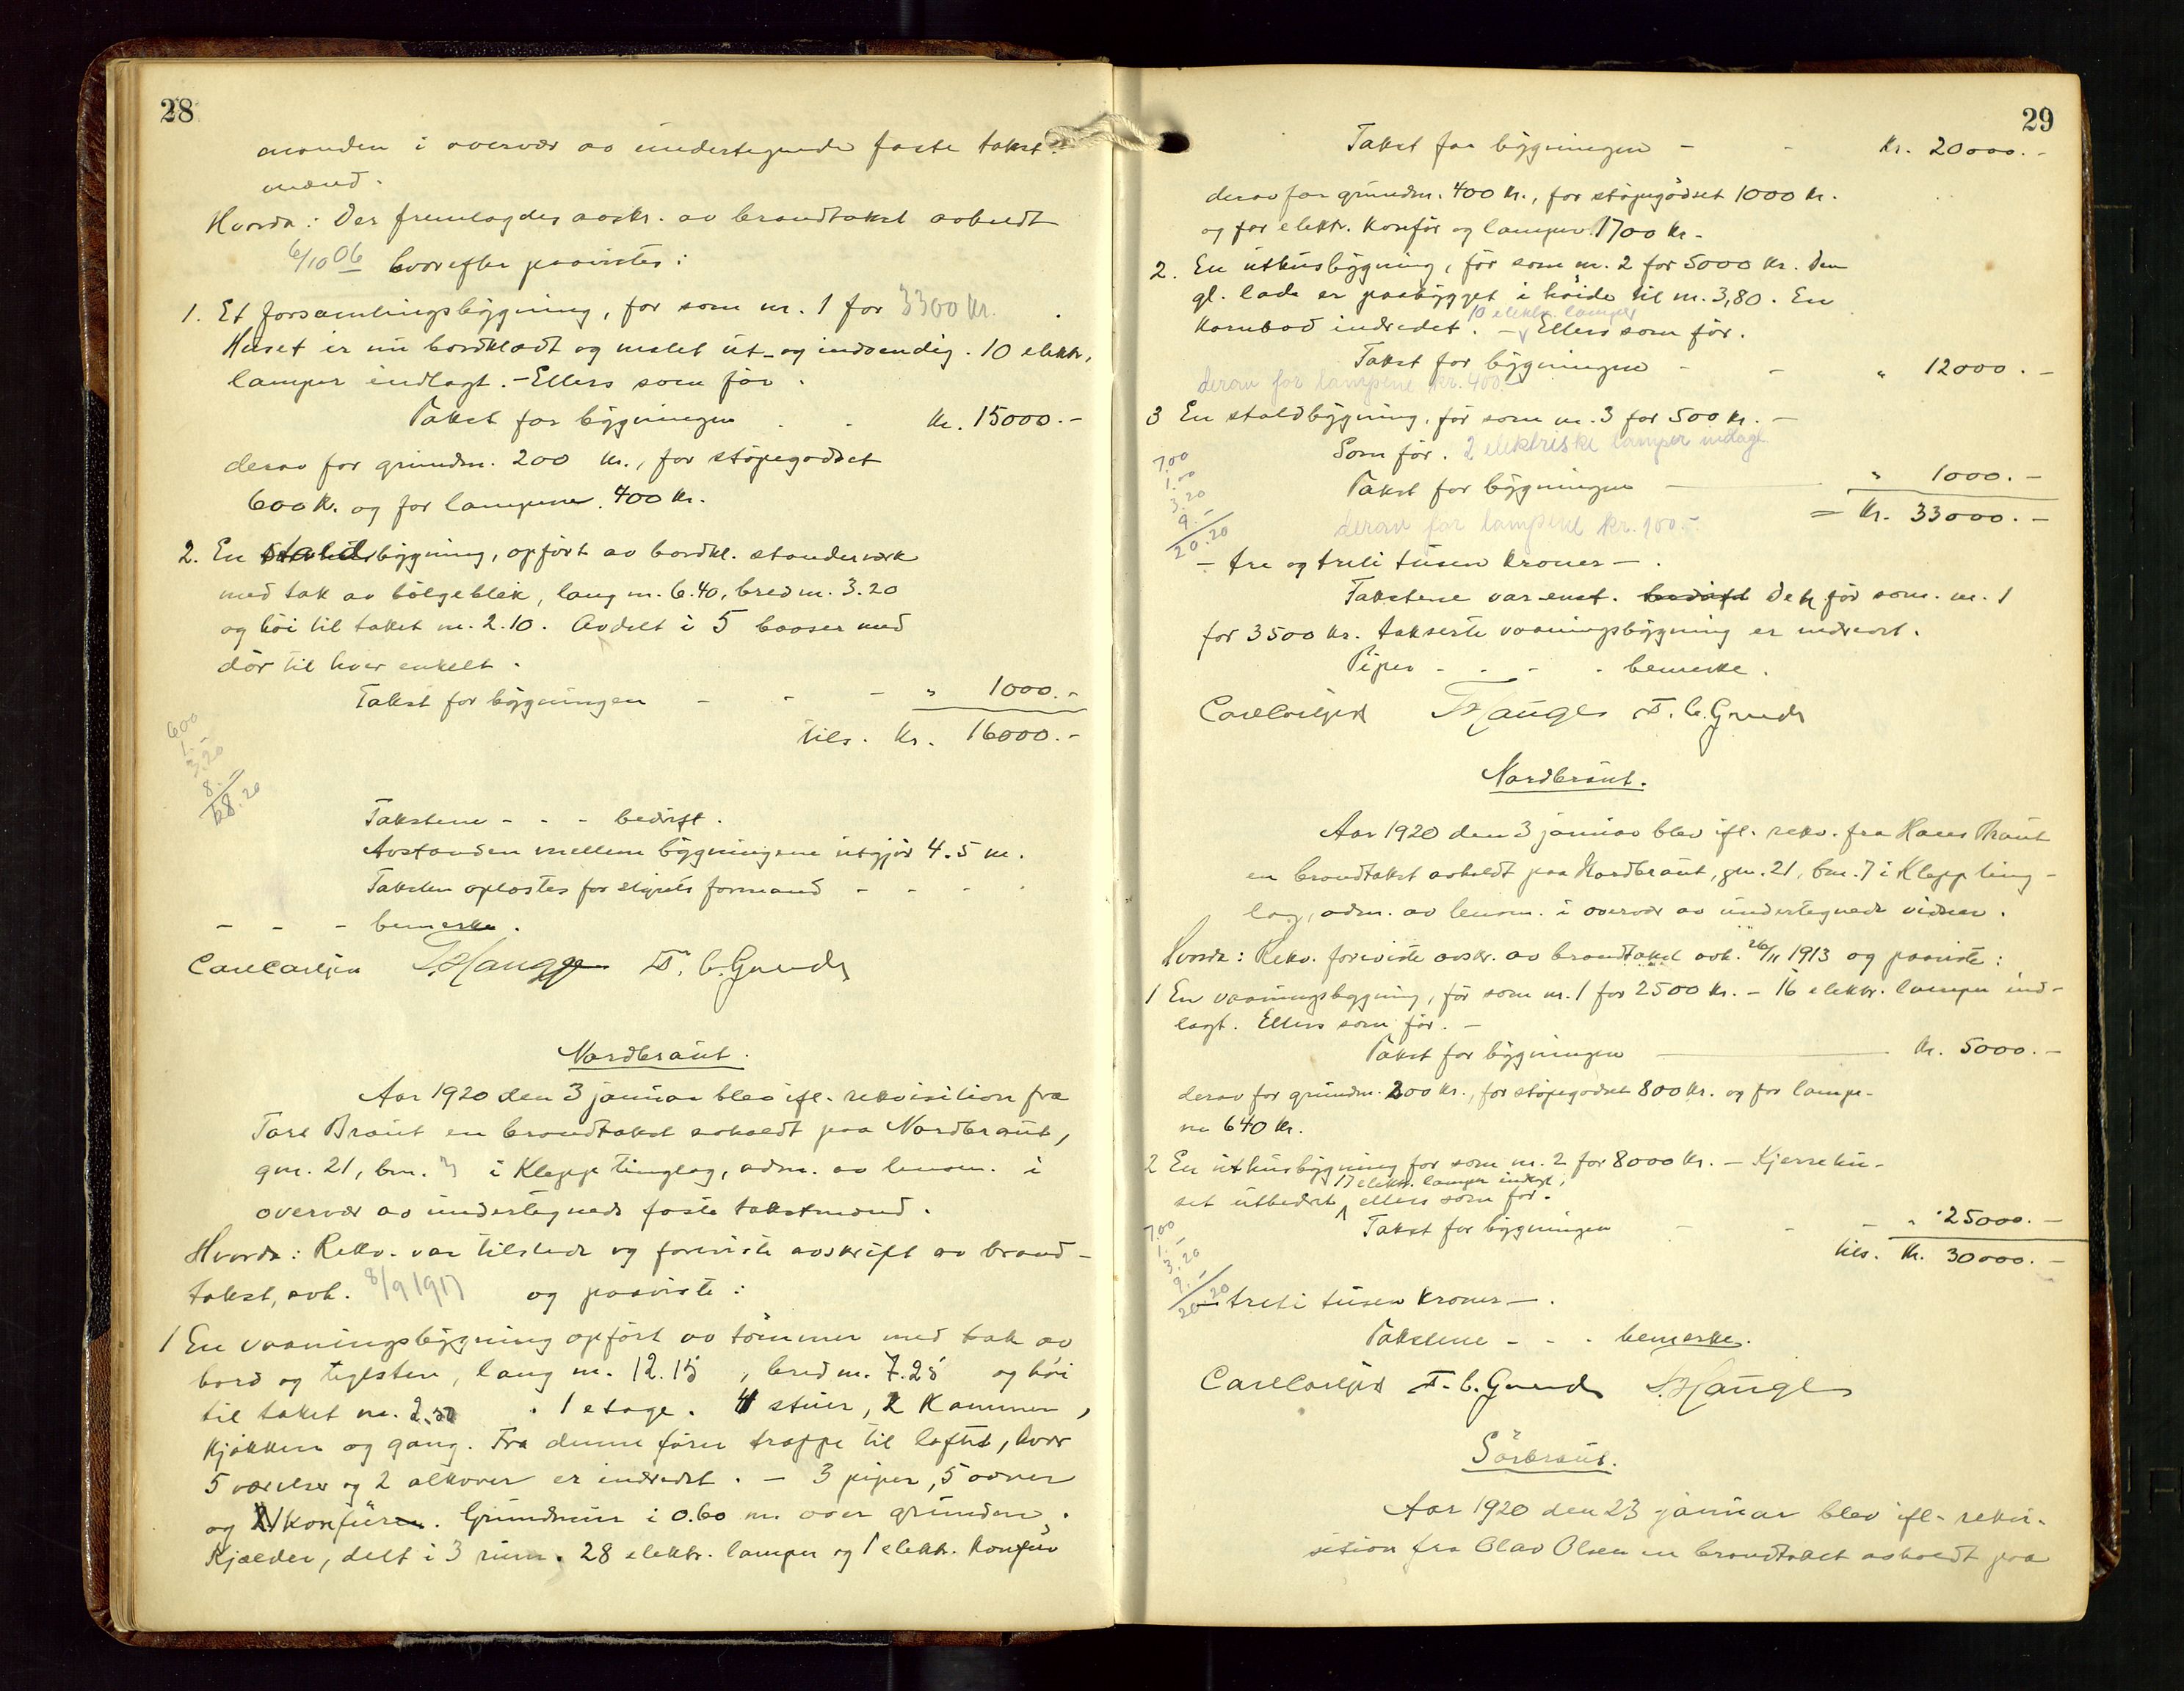 28
manden i overvær av undertegnede faste takst-
mænd.
Hvorda: Der fremlagdes avskr. av brandtakst avholdt
6/10 06 hvorefter paavistes:
1. Et forsamlingsbygning, før som nr. 1 for 3300 kr.
Huset er nu bordklædt og malet ut- og indvendig. 10 elektr.
lamper indlagt. - Ellers som før.
Takst for bygningen - - kr. 15000.-
derav for grundm. 200 kr., for støpegodset
600 kr. og for lampene 400 kr.
2. En staldbygning, opført av bordkl. standerværk
med tak av bølgeblik, lang m. 6.40, bred m. 3.20
og høi til taket m. 2.10. Avdelt i 5 baaser med
dør til hver enkelt.
Takst for bygningen - - - " 1000.-
tils. kr. 16000.-
600
1.-
3.20
8.-
68.20
Takstene - - - bedrift.
Avstanden mellem bygningene utgjør 4.5 m.
Taksten oplæstes for styrets formand - - -
- - - bemerke.
Carl Carlsen T. Hauge T. C. Grude
Nordbraut.
Aar 1920 den 3 januar blev ifl. rekvisition fra
Tore Braut en brandtakst avholdt paa Nordbraut,
gnr. 21, bnr. 3 i Klepp tinglag, adm. av lensm. i
overvær av undertegnede faste takstmænd.
Hvorda: Rekv. var tilstede og foreviste avskrift av brand-
takst, avh. 8/9 1917 og paaviste:
1 En vaaningsbygning opført av tømmer med tak av
bord og teglsten, lang m. 12.15, bred m. 7.25 og høi
til taket m. 2.50. 1 etage. 4 stuer, 2 kammer,
kjøkken og gang. Fra denne fører trappe til loftet, hvor
5 værelser og 2 alkover er indredet. - 3 piper, 5 ovner
og 1 konfür. Grundmur i 0.60 m. over grunden.
Kjælder, delt i 3 rum. 28 elektr. lamper og 1 elektr. konfür
29
Takst for bygningen - - kr. 20000.-
derav for grundm. 400 kr., for støpegodset 1000 kr.
og for elektr. konfür og lamper 1700 kr.-
2. En uthusbygning, før som nr. 2 for 5000 kr. Den
gl. lade er paabygget i høide til m. 3,80. En
kornbod indredet. - 10 elektr. lamper Ellers som før.
Takst for bygningen - - " 12000.-
derav for lampene kr. 400.-
3 En staldbygning, før som nr. 3 for 500 kr. -
Som før. 2 elektriske lamper indlagt
Takst for bygningen - " 1000.-
7.00
1.00
3.20
9.-
20.20
= kr. 33000.-
derav for lampene kr. 100.-
- tre og treti tusen kroner -.
Takstene var enst. Den før som nr. 1
for 3500 kr. takserte vaaningsbygning er nedrevet.
Piper - - - - bemerke.
Carl Carlsen T. Hauge T. C. Grude
Nordbraut.
Aar 1920 den 3 januar blev ifl. rekv. fra Hans Braut
en brandtakst avholdt paa Nordbraut, gnr. 21, bnr. 7 i Klepp ting-
lag, adm. av lensm. i overvær av undertegnede vidner.
Hvorda: Rekv. foreviste avskr. av brandtakst avh. 26/11 1913 og paaviste:
1 En vaaningsbygning, før som nr. 1 for 2500 kr. - 16 elektr. lamper ind-
lagt. Ellers som før. -
Takst for bygningen - kr. 5000.-
derav for grundm. 200 kr., for støpegodset 800 kr. og for lampe-
ne 640 kr.
2 En uthusbygning før som nr. 2 for 8000 kr. - Kjerrehu-
set utbedret, 17 elektr. lamper indlagt, ellers som før.
Takst for bygningen - - - " 25000.-
tils. kr. 30000.-
7.00
1.-
3.20
9.-
20.20
- treti tusen kroner -.
Takstene - - - bemerke.
Carl Carlsen T. C. Grude T. Hauge
Sørbraut.
Aar 1920 den 23 januar blev ifl. rekvi-
sition fra Olav Olsen en brandtakst avholdt paa